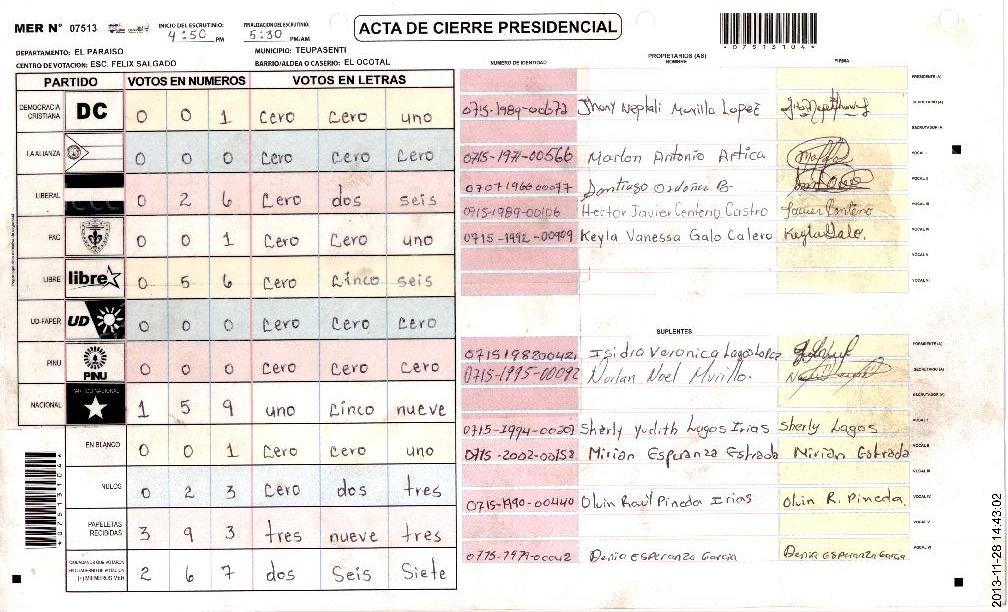 MER N° 07513
INICIO DEL ESCRUTINIO: 4:50 PM
FINALIZACION DEL ESCRUTINIO: 5:30 PM/AM
ACTA DE CIERRE PRESIDENCIAL
*07513104*
DEPARTAMENTO: EL PARAISO
MUNICIPIO: TEUPASENTI
CENTRO DE VOTACION: ESC. FELIX SALGADO
BARRIO/ALDEA O CASERIO: EL OCOTAL
PARTIDO VOTOS EN NUMEROS VOTOS EN LETRAS
DEMOCRACIA CRISTIANA DC 0 0 1 Cero Cero uno
LA ALIANZA 0 0 0 Cero Cero Cero
LIBERAL 0 2 6 Cero dos seis
PAC 0 0 1 Cero Cero uno
LIBRE libre 0 5 6 Cero Cinco seis
UD-FAPER UD 0 0 0 Cero Cero Cero
PINU PINU 0 0 0 Cero Cero Cero
NACIONAL PARTIDO NACIONAL 1 5 9 uno Cinco nueve
EN BLANCO 0 0 1 Cero Cero uno
NULOS 0 2 3 Cero dos tres
PAPELETAS RECIBIDAS 3 9 3 tres nueve tres
CIUDADANOS QUE VOTARON EN CUADERNO DE VOTACION (+) MIEMBROS MER 2 6 7 dos Seis Siete
*07513104*
PROPIETARIOS (AS)
NUMERO DE IDENTIDAD NOMBRE FIRMA
PRESIDENTE (A)
0715-1989-00672 Jhony Neptali Murillo Lopez SECRETARIO (A)
ESCRUTADOR (A)
0715-1971-00566 Marlon Antonio Artica VOCAL I
0707196600077 Santiago Ordoñez VOCAL II
0915-1989-00106 Hector Javier Centeno Castro Javier Centeno VOCAL III
0715-1992-00909 Keyla Vanessa Galo Calero Keyla Galo. VOCAL IV
VOCAL V
VOCAL VI
SUPLENTES
Isidra Veronica Lagos Lopez PRESIDENTE (A)
0715-1995-00092 Norlan Noel Murillo. SECRETARIO (A)
ESCRUTADOR (A)
Sherly Yudith Lagos Irias Sherly Lagos VOCAL I
0715-2002-00152 Mirian Esperanza Estrada Mirian Estrada VOCAL II
VOCAL III
0715-1990-00440 Olvin Raúl Pineda Irias Olvin R. Pineda. VOCAL IV
VOCAL V
Denia Esperanza Garcia Denia Esperanza Garcia VOCAL VI
2013-11-28 14:43:02